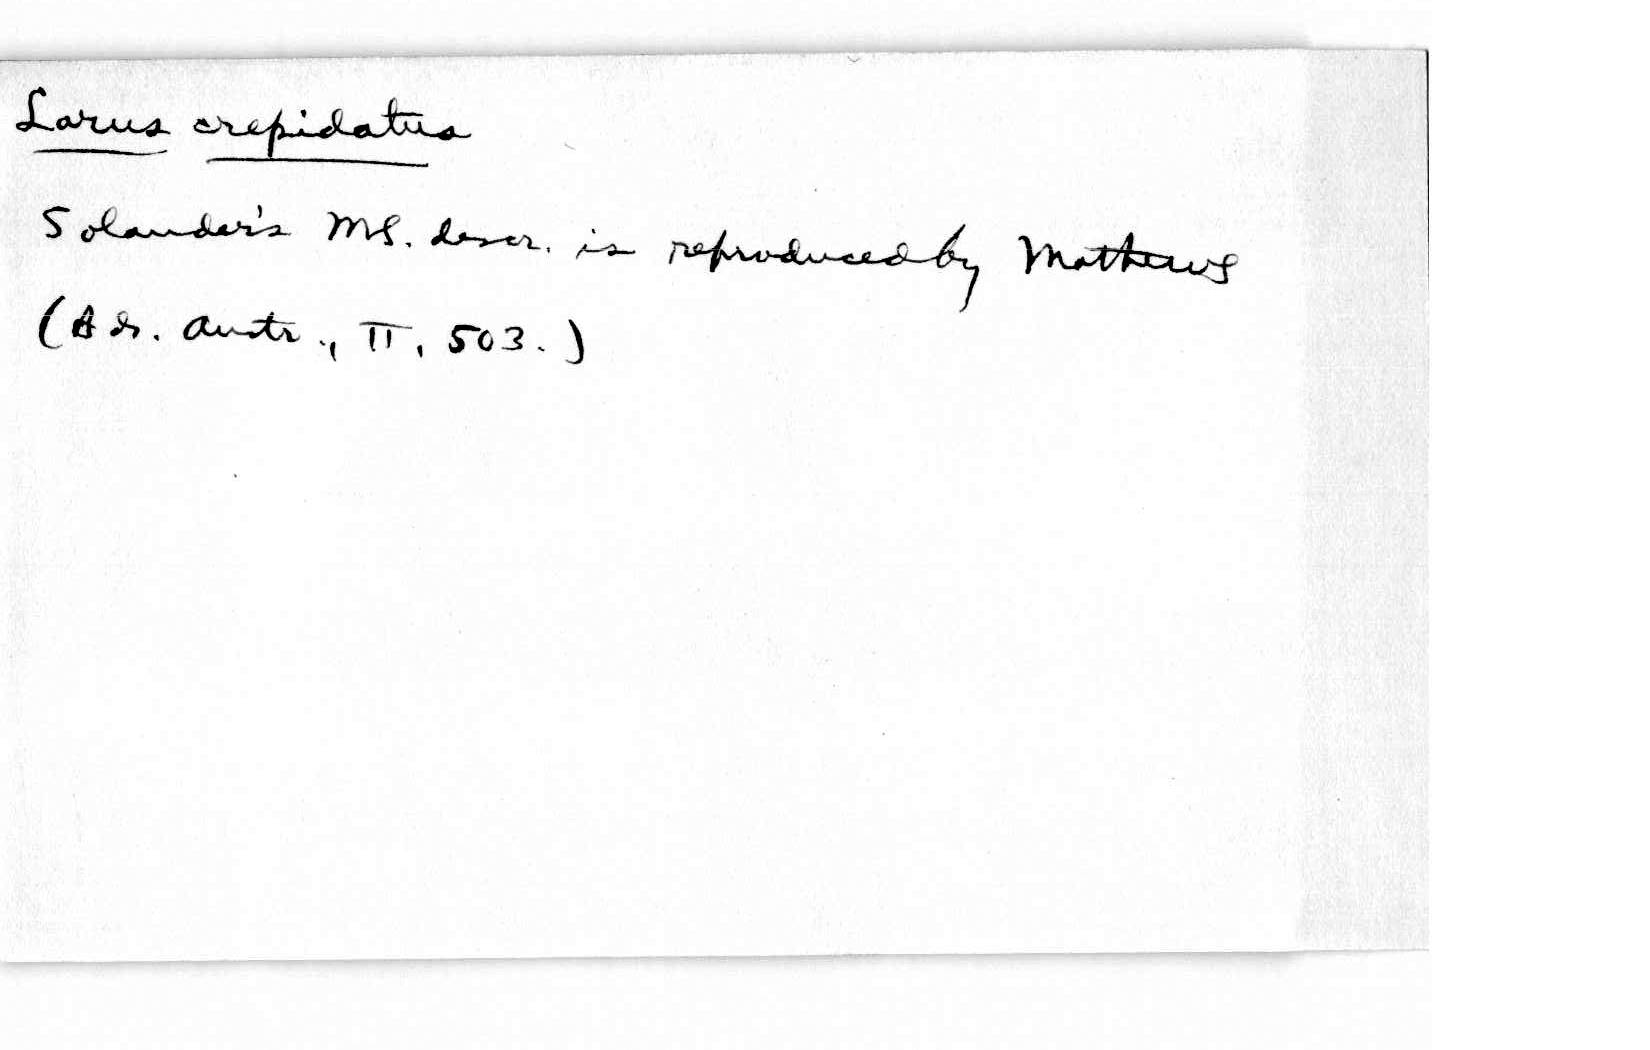 Larus crepidatus
Solander's MS. descr. is reproduced by Mathews
(Bds. Austr., II, 503.)